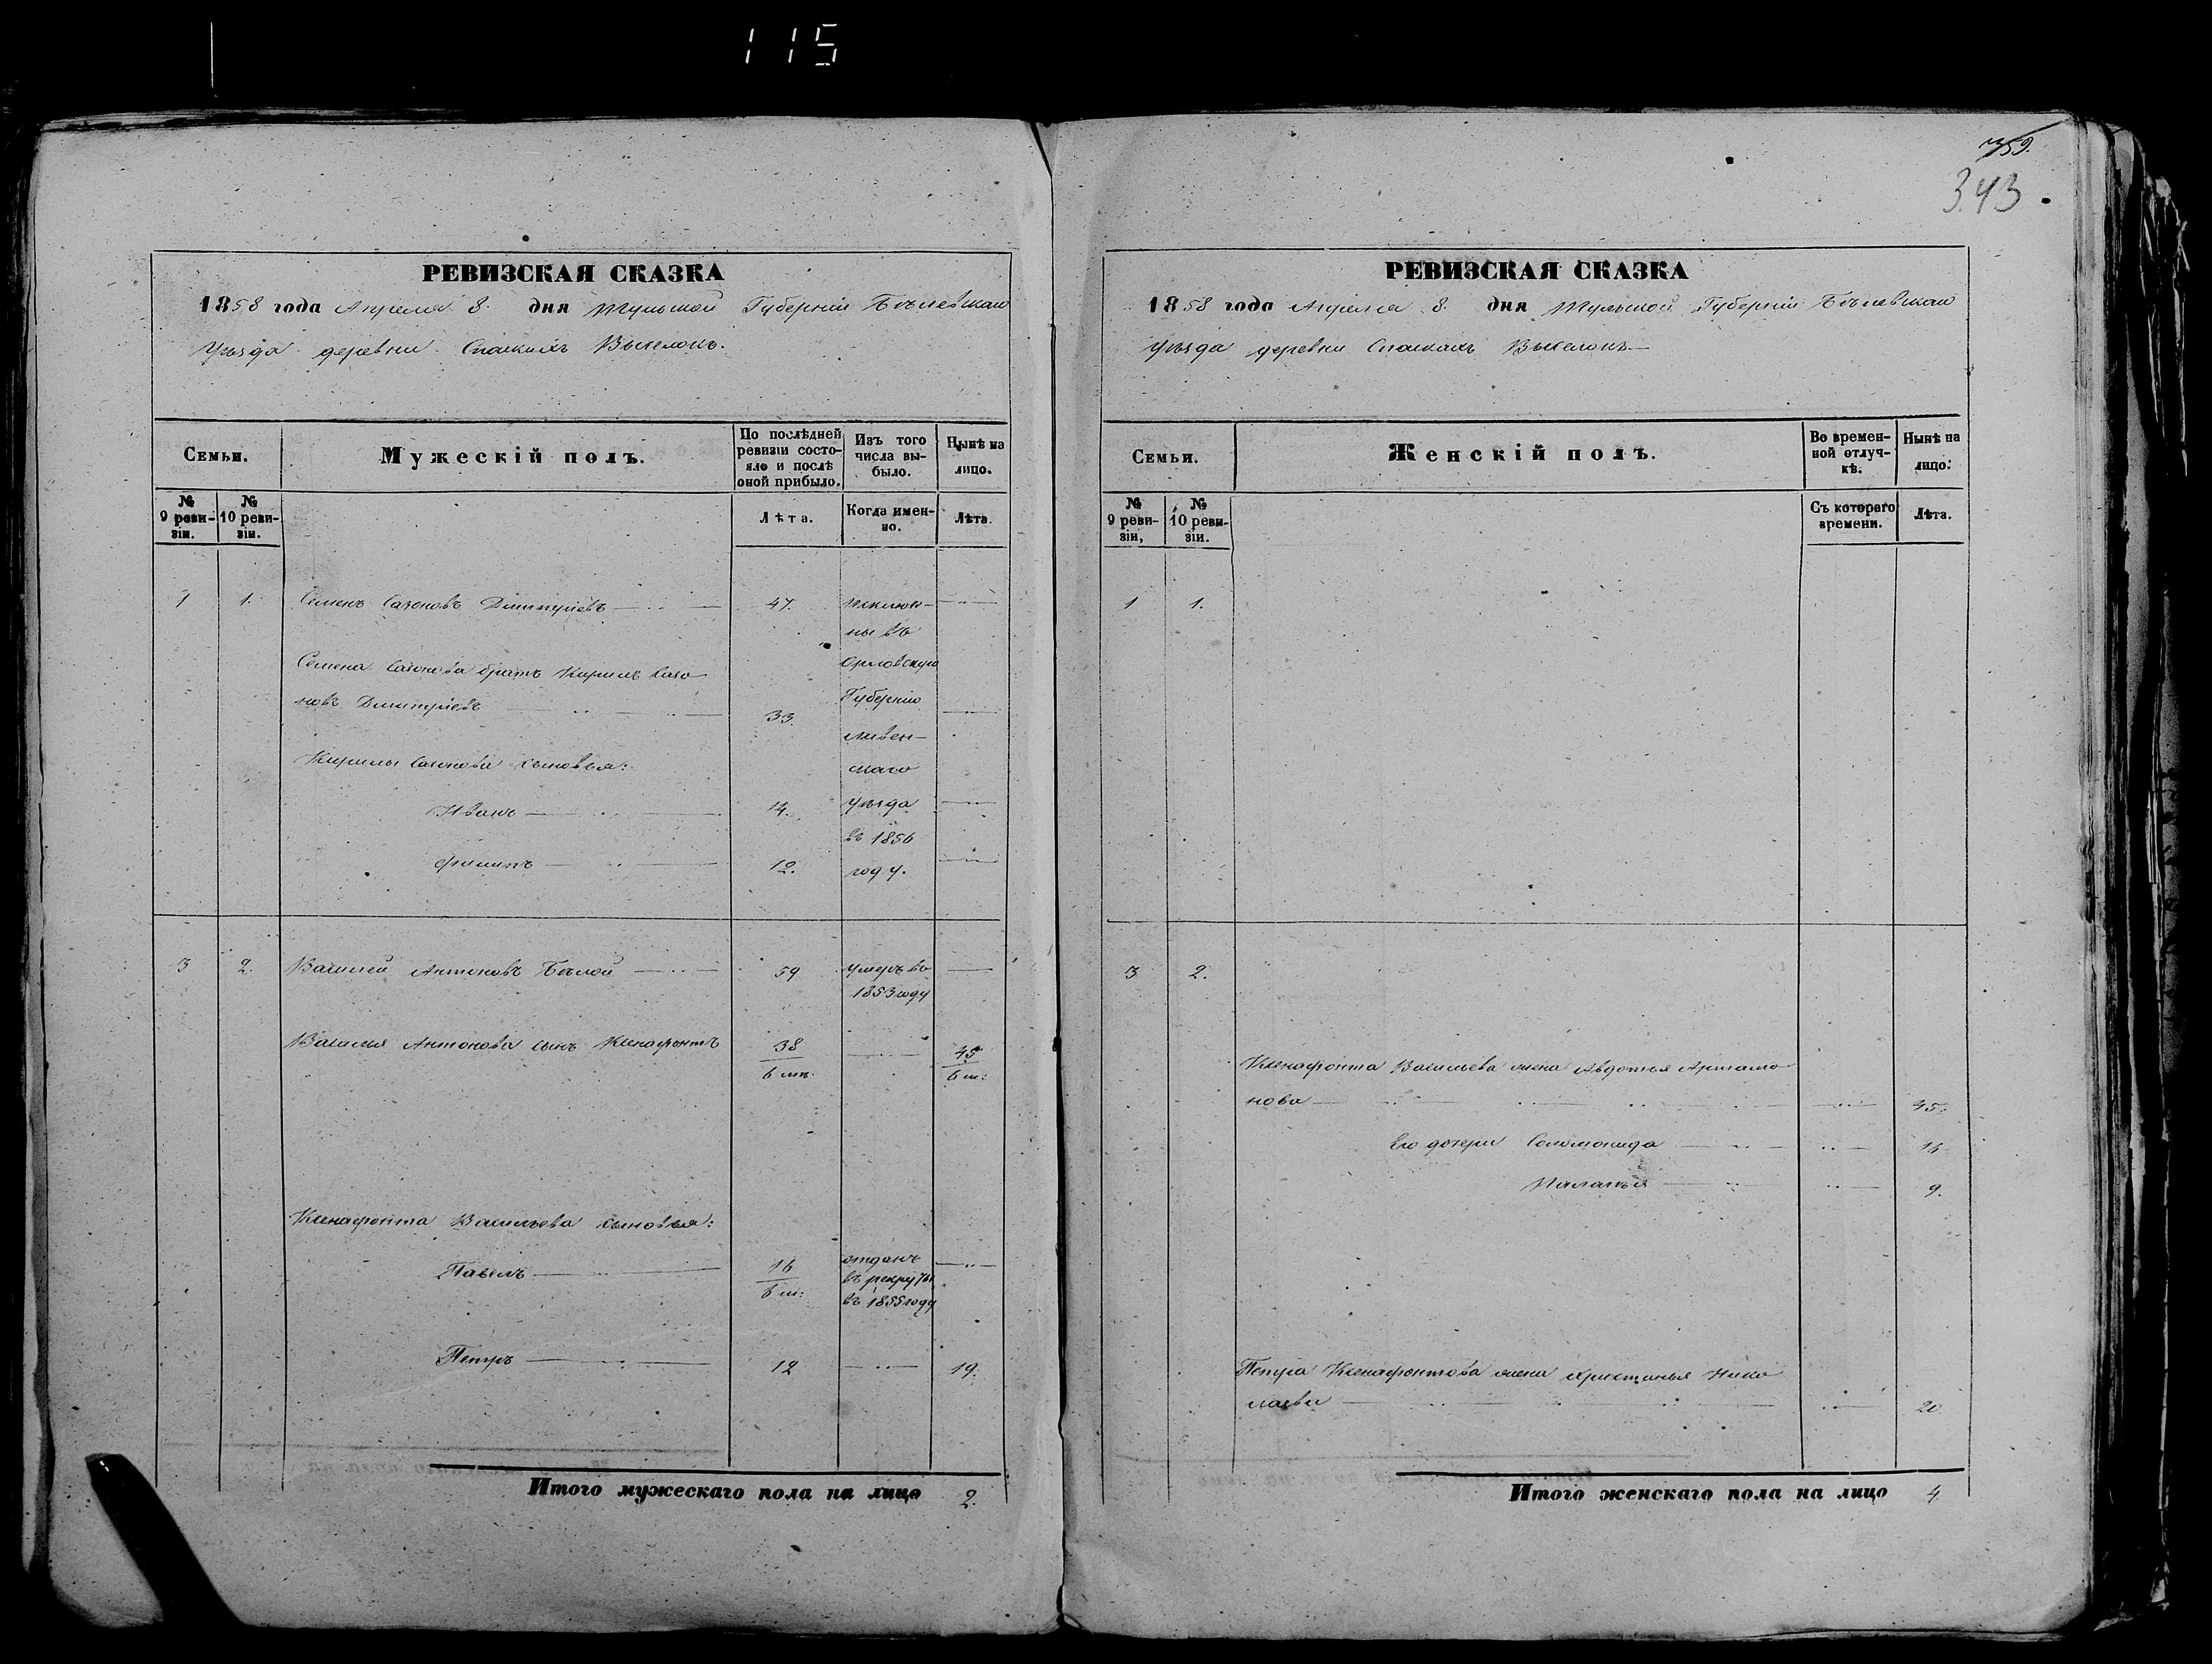 115
759.
343
РЕВИЗСКАЯ СКАЗКА
1858 года Апреля 8. дня Тульской Губерніи Бѣлевскаго
Уѣзда деревни Спаскихъ Выселокъ.
Семьи.
Мужескій полъ.
По послѣдней ревизіи состояло и послѣ оной прибыло.
Изъ того числа выбыло.
Нынѣ на лицо.
№ 9 ревизіи.
№ 10 ревизіи.
Лѣта.
Когда именно.
Лѣта.
1 1. Семенъ Сазоновъ Дмитріевъ 47.
Семена Сазонова братъ Кирилъ Сазо
новъ Дмитріевъ 33.
Кирилы Сазонова сыновья:
Иванъ 14.
Филипъ 12.
ны въ
Орловскую
Губернію
Ливен-
скаго
уѣзда
въ 1856
году.
3 2. Василей Антоновъ Бѣлой 59 умеръ въ
1853 году
Василья Антонова сынъ Ксенафонтъ 38 45
6 м: 6 м:
Ксенафонта Васильева сыновья:
Павелъ 16 отданъ
6 м: въ рекруты
въ 1855 году
Петръ 12 19.
Итого мужескаго пола на лицо 2.
РЕВИЗСКАЯ СКАЗКА
1858 года Апреля 8. дня Тульской Губерніи Бѣлевскаго
Уѣзда деревни Спаскихъ Выселокъ
Семьи.
Женскій полъ.
Во временной отлучкѣ.
Нынѣ на лицо.
№ 9 ревизіи,
№ 10 ревизіи.
Съ котораго времени.
Лѣта.
1 1.
3 2.
Ксенафонта Васильева жена Авдотья Артамо
нова 45.
Его дочери Соломонида
Палагья 9.
Петра Ксенафонтова жена Христинья Нико
лаева 20
Итого женскаго пола на лицо 4